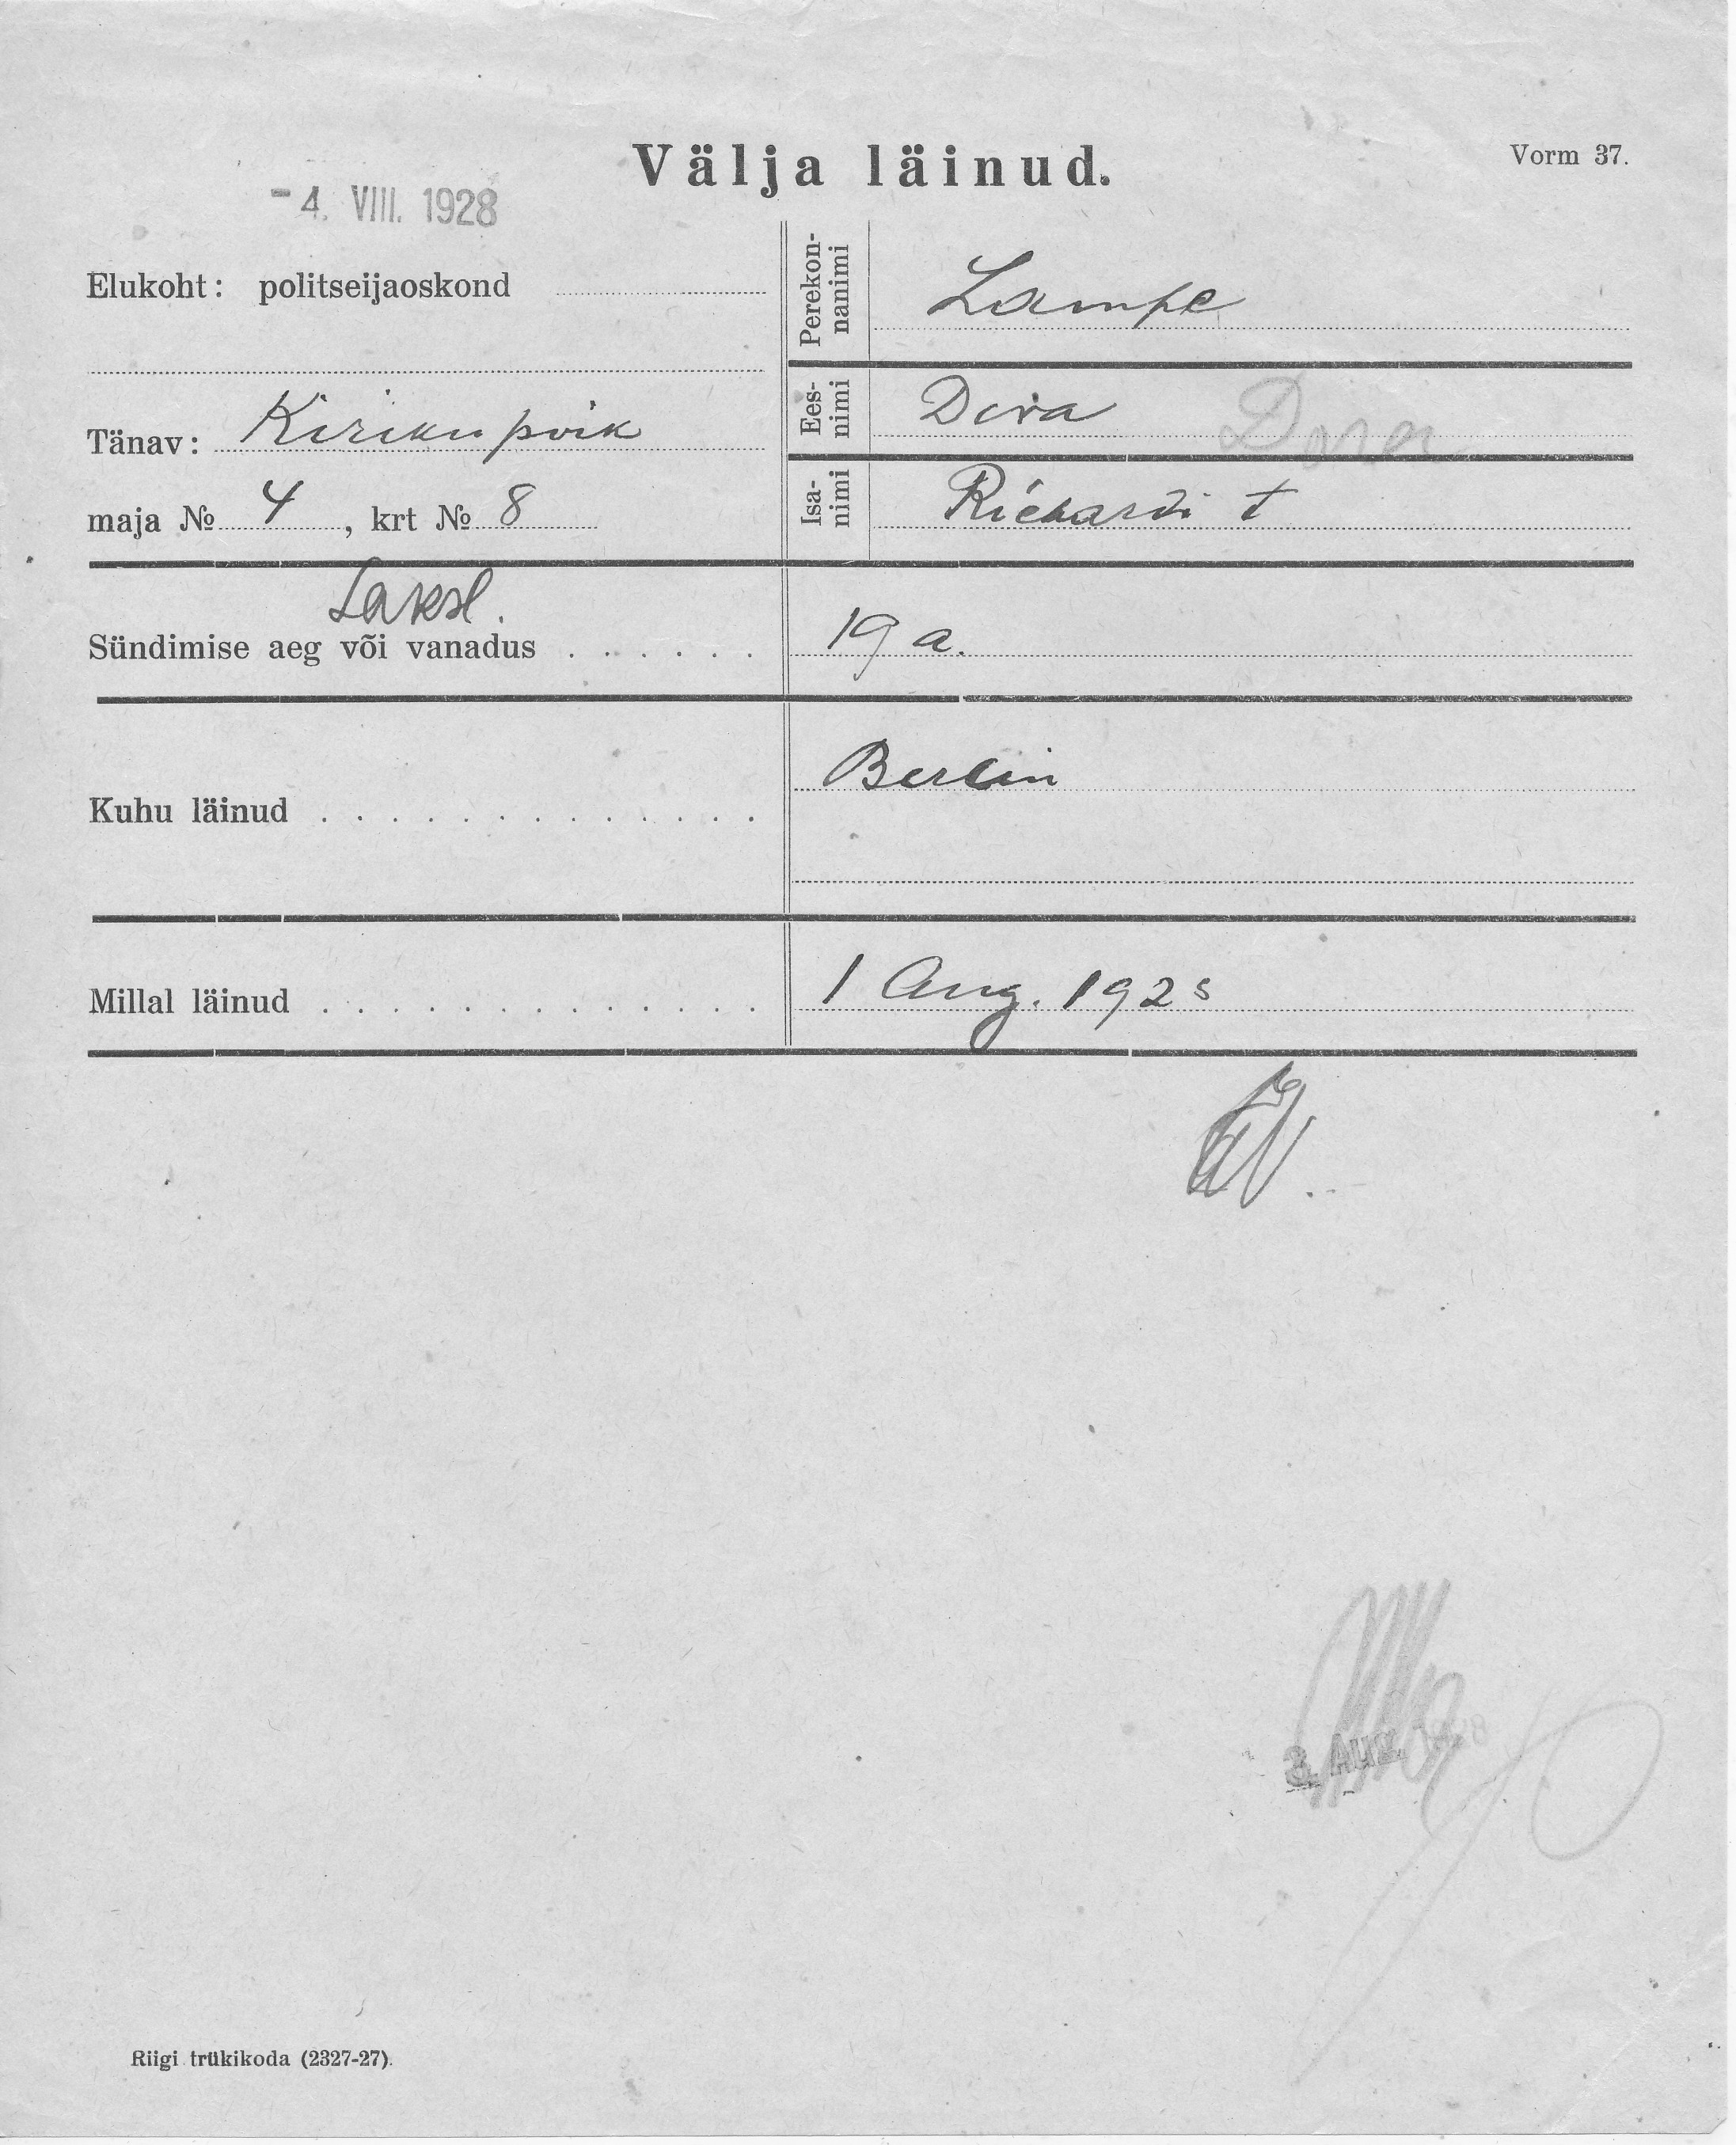 Välja läinud.
Vorm 37.
- 4. VIII. 1928
Elukoht: politseijaoskond
Perekon-
nanimi
Lampe
Tänav: Kirikupõik
Ees-
nimi
Dora Dora
maja № 4, krt № 8
Isa-
nimi
Richardi t
Saksl.
Sündimise aeg või vanadus . . . . . . 19 a.
Kuhu läinud . . . . . . . . . . . . . Berlin
Millal läinud . . . . . . . . . . . . . 1 Aug. 1928
3. Aug. 1928
Riigi trükikoda (2327-27).